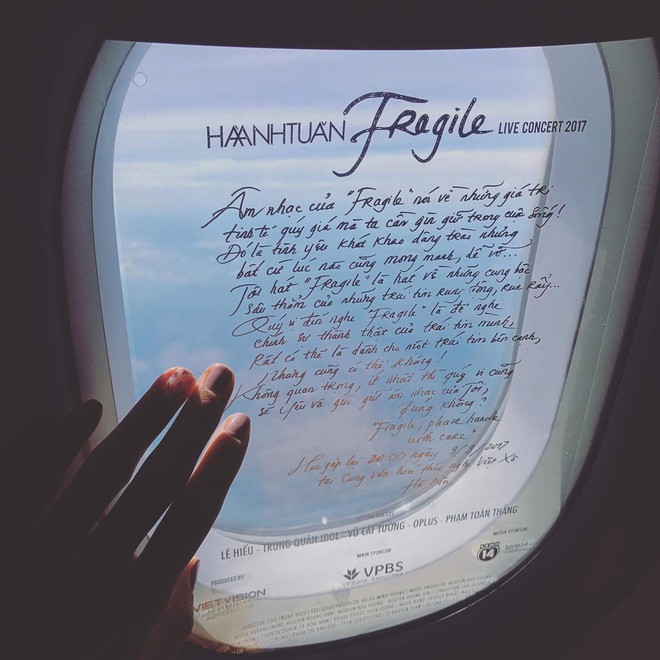 HAANHTUẤN Fragile LIVE CONCERT 2017
Âm nhạc của "Fragile" nói về những giá trị
tinh tế quý giá mà ta cần gìn giữ trong cuộc sống!
Đó là tình yêu khát khao dâng tràn nhưng
bất cứ lúc nào cũng mong manh, dễ vỡ...
Tôi hát "Fragile" là hát về những cung bậc
sâu thẳm của những trái tim rung động, run rẩy...
Quý vị đến nghe "Fragile" là để nghe
chính sự thành thật của trái tim mình,
Rất có thể là dành cho một trái tim bên cạnh,
Nhưng cũng có thể không!
Không quan trọng, ít nhất thì quý vị cũng
sẽ yêu và gìn giữ âm nhạc của Tôi,
đúng không?
"Fragile, please handle
with care"
Hẹn gặp lại 20:00 ngày 9/9/2017
tại Cung văn hóa hữu nghị Việt Xô
Hà Nội
LÊ HIẾU - TRUNG QUÂN IDOL - VŨ CÁT TƯỜNG - OPLUS - PHẠM TOÀN THẮNG
PRODUCED BY
VIETVISION
MAIN SPONSOR
VPBS
MEDIA SPONSOR
14